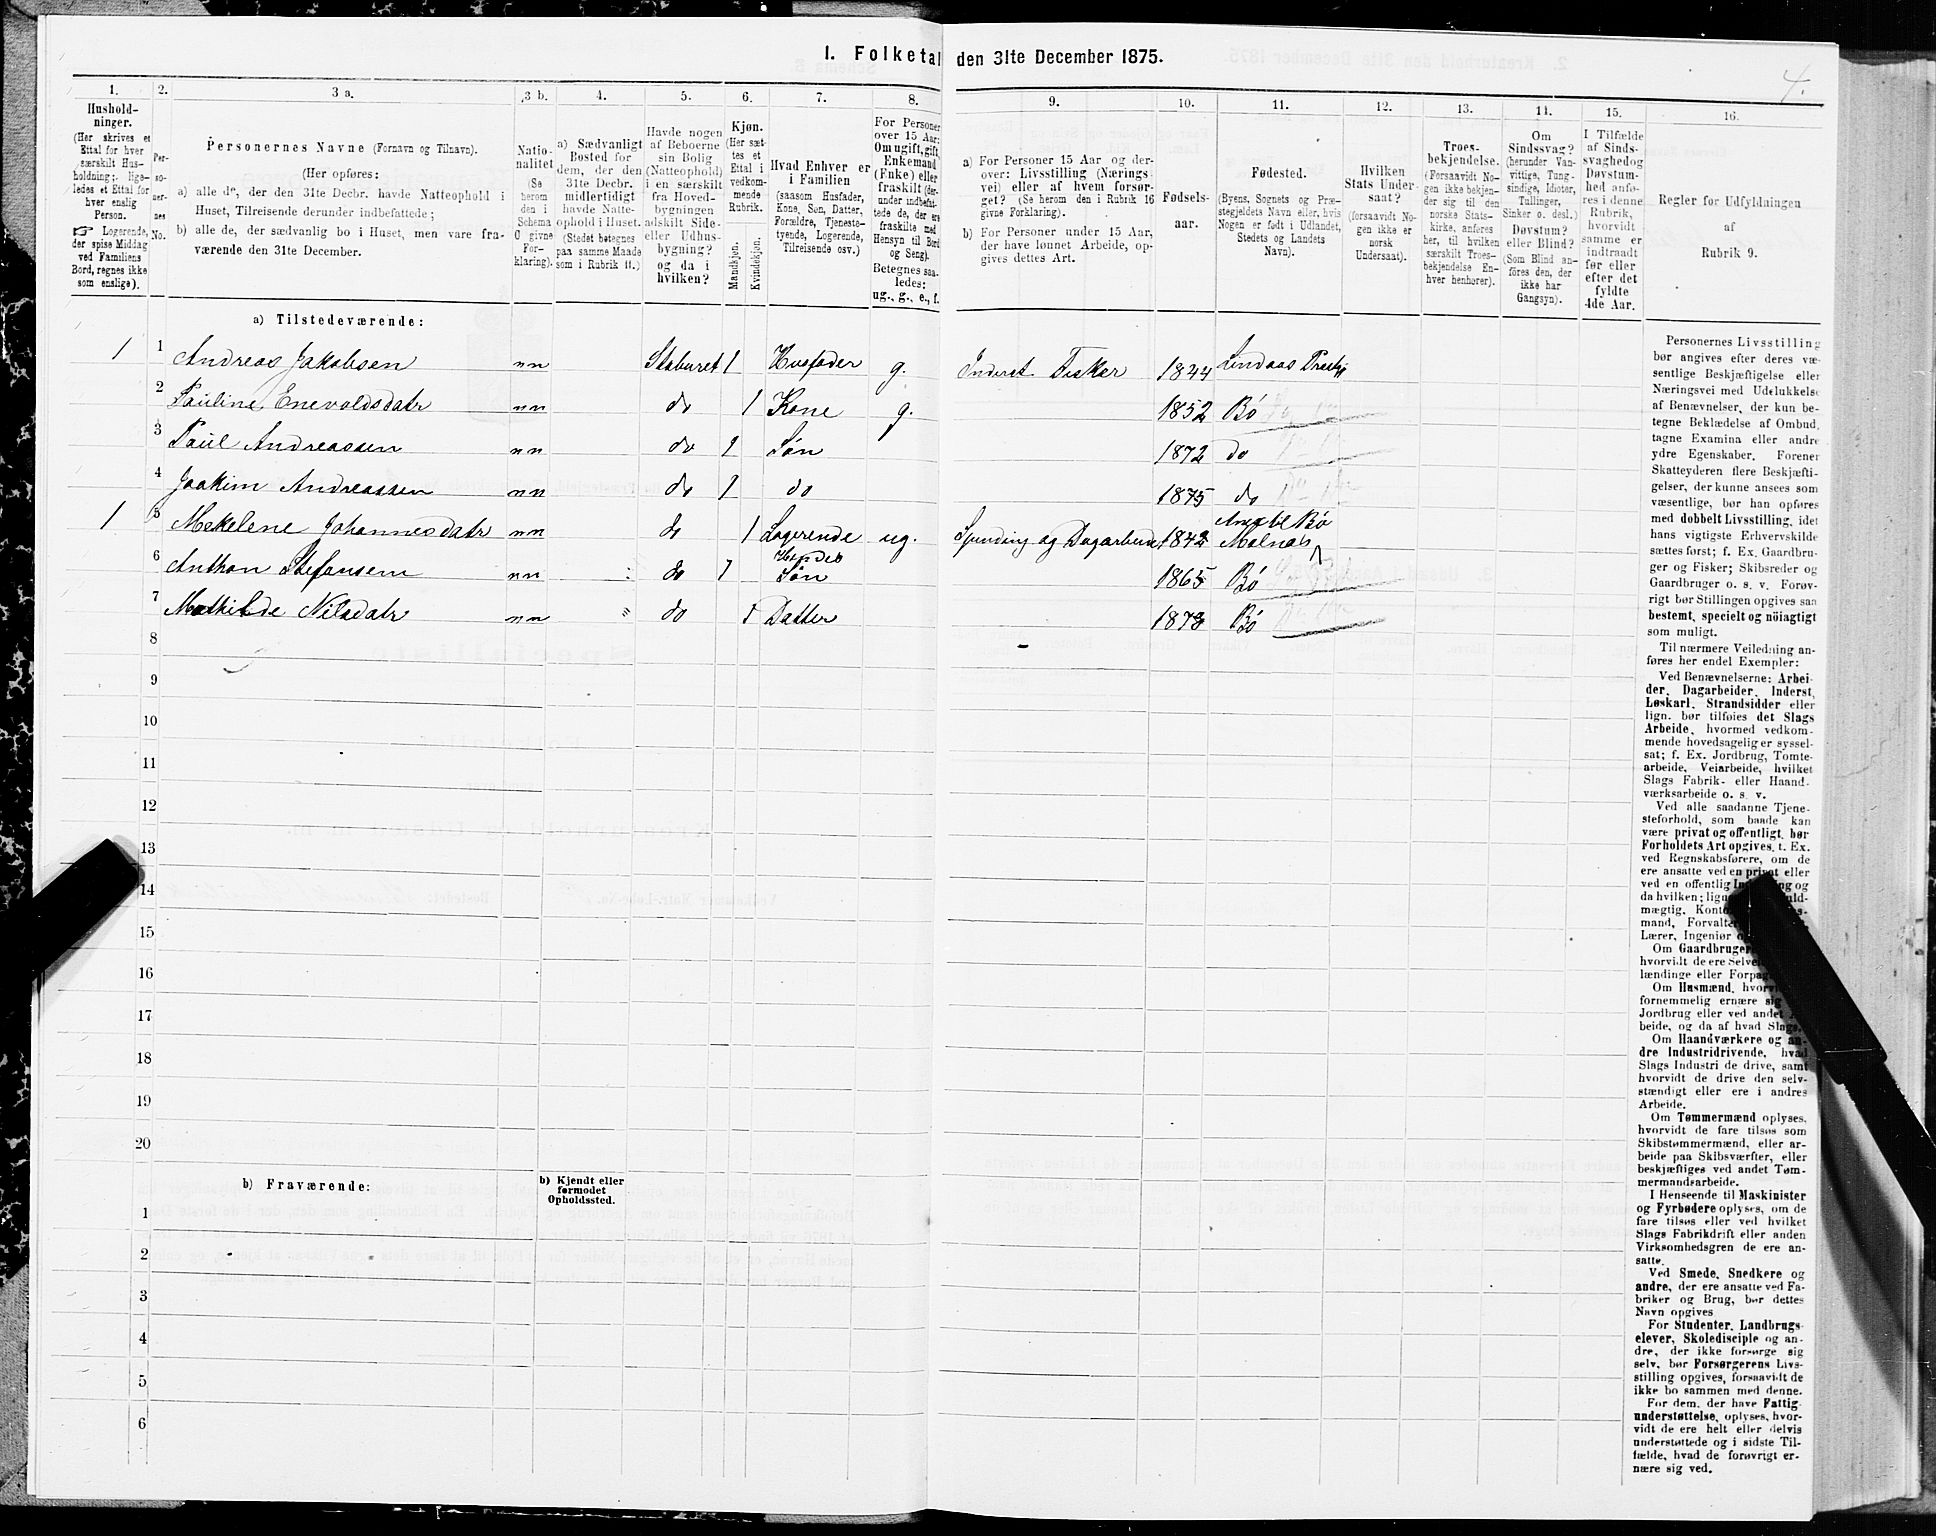 I. Folketal den 31te December 1875.
4.
1.
Hushold-
ninger.
(Her skrives et
Ettal for hver
særskilt Hus-
holdning; lige-
ledes et Ettal for
hver enslig
Person.
☞ Logerende,
der spise Middag
ved Familiens
Bord, regnes ikke
som enslige).
2.
Per-
so-
ner-
nes
No.
3 a.
Personernes Navne (Fornavn og Tilnavn).
(Her opføres:
a) alle de, der den 31te Decbr. havde Natteophold i
Huset, Tilreisende derunder indbefattede;
b) alle de, der sædvanlig bo i Huset, men vare fra-
værende den 31te December.
3 b.
Natio-
nalitet
(Se
herom
den i
Schema
O givne
For-
klaring).
4.
a) Sædvanligt
Bosted for
dem, der den
31te Decbr.
midlertidigt
havde Natte-
ophold i Huset.
(Stedet betegnes
paa samme Maade
som i Rubrik 11.)
5.
Havde nogen
af Beboerne
sin Bolig
(Natteophold)
i en særskilt
fra Hoved-
bygningen
adskilt Side-
eller Udhus-
bygning?
og da i
hvilken?
6.
Kjøn.
(Her sæt-
tes et
Ettal i
vedkom-
mende
Rubrik.
Mandkjøn.
Kvindekjøn.
7.
Hvad Enhver er
i Familien
(saasom Husfader,
Kone, Søn, Datter,
Forældre, Tjeneste-
tyende, Logerende,
Tilreisende osv.)
8.
For Personer
over 15 Aar:
Om ugift, gift,
Enkemand
(Enke) eller
fraskilt (der-
under indbefat-
tede de, der ere
fraskilte med
Hensyn til Bord
og Seng).
Betegnes saa-
ledes:
ug., g., e., f.
9.
a) For Personer 15 Aar og der-
over: Livsstilling (Nærings-
vei) eller af hvem forsør-
get? (Se herom den i Rubrik 16
givne Forklaring).
b) For Personer under 15 Aar,
der have lønnet Arbeide, op-
gives dettes Art.
10.
Fødsels-
aar.
11.
Fødested.
(Byens, Sognets og Præ-
stegjeldets Navn eller, hvis
Nogen er født i Udlandet,
Stedets og Landets
Navn).
12.
Hvilken
Stats Under-
saat?
(forsaavidt No-
gen ikke er
norsk
Undersaat).
13.
Troes-
bekjendelse.
(Forsaavidt No-
gen ikke bekjen-
der sig til den
norske Stats-
kirke, anføres
her, til hvilken
særskilt Troes-
bekjendelse En-
hver henhører).
14.
Om
Sindssvag?
(herunder Van-
vittige, Tung-
sindige, Idioter,
Tullinger,
Sinker o. desl.)
Døvstum?
eller Blind?
(Som Blind an-
føres den, der
ikke har
Gangsyn).
15.
I Tilfælde
af Sinds-
svaghed og
Døvstum-
hed anfø-
res i denne
Rubrik,
hvorvidt
samme er
indtraadt
før eller
efter det
fyldte
4de Aar.
16.
Regler for Udfyldningen
af
Rubrik 9.
a) Tilstedeværende:
1 1 Andreas Jakobsen nn Staburet 1 Husfader g. Inderst Fisker 1844 Lindaas Præstgj
2 Pauline Enevoldsdatr nn do 1 Kone g. 1852 Bø
3 Paul Andreassen nn do 1 Søn 1872 do
4 Joakim Andreassen nn do 1 do 1875 do
1 5 Mekelene Johannesdatr nn do 1 Logerende ug. Spinding og Dagarbeide 1842 Anex til Bø Malnæs
6 Anthon Stefansem nn do 1 Hendes Søn 1865 Bø
7 Mathilde Nilsdatr nn " do 1 Datter 1873 Bø
8
9
10
11
12
13
14
15
16
17
18
19
20
b) Fraværende:
b) Kjendt eller
formodet
Opholdssted.
1
2
3
4
5
6
Personernes Livsstilling
bør angives efter deres væ-
sentlige Beskjæftigelse eller
Næringsvei med Udelukkelse
af Benævnelser, der kun be-
tegne Beklædelse af Ombud,
tagne Examina eller andre
ydre Egenskaber. Forener
Skatteyderen flere Beskjæfti-
gelser, der kunne ansees som
væsentlige, bør han opføres
med dobbelt Livsstilling, idet
hans vigtigste Erhvervskilde
sættes først; f. Ex. Gaardbru-
ger og Fisker; Skibsreder og
Gaardbruger o. s. v. Forøv-
rigt bør Stillingen opgives saa
bestemt, specielt og nöiagtigt
som muligt.
Til nærmere Veiledning an-
føres her endel Exempler:
Ved Benævnelserne: Arbei-
der, Dagarbeider, Inderst,
Løskarl, Strandsidder eller
lign. bør tilføies det Slags
Arbeide, hvormed vedkom-
mende hovedsagelig er syssel-
sat; f. Ex. Jordbrug, Tomte-
arbeide, Veiarbeide, hvilket
Slags Fabrik- eller Haand-
værksarbeide o. s. v.
Ved alle saadanne Tjene-
steforhold, som baade kan
være privat og offentligt, bør
Forholdets Art opgives, t. Ex.
ved Regnskabsførere, om de
ere ansatte ved en privat eller
ved en offentlig
da hvilken;
mægtig,
mand,
Lærer, Ingeniør
Om Gaardbrugere
hvorvidt de ere
lændinge eller
Om Husmænd,
fornemmelig ernære sig
Jordbrug eller ved andet
beide, og da af hvad Slags.
Om Haandværkere og an-
dre Industridrivende, hvad
Slags Industri de drive, samt
hvorvidt de drive den selv-
stændigt eller ere i andres
Arbeide.
Om Tømmermænd oplyses,
hvorvidt de fare tilsøs som
Skibstømmermænd, eller ar-
beide paa Skibsværfter, eller
beskjæftiges ved andet Tøm-
mermandsarbeide.
I Henseende til Maskinister
og Fyrbødere oplyses, om de
fare tilsøs eller ved hvilket
Slags Fabrikdrift eller anden
Virksomhedsgren de ere an-
satte.
Ved Smede, Snedkere og
andre, der ere ansatte ved Fa-
briker og Brug, bør dettes
Navn opgives
For Studenter, Landbrugs-
elever, Skoledisciple og an-
dre, der ikke forsørge sig
selv, bør Forsørgerens Livs-
stilling opgives, forsaavidt de
ikke bo sammen med denne.
For dem, der have Fattig-
understøttelse, oplyses, hvor-
vidt de ere helt eller delvis
understøttede og i sidste Til-
fælde, hvad de forøvrigt er-
nære sig ved.